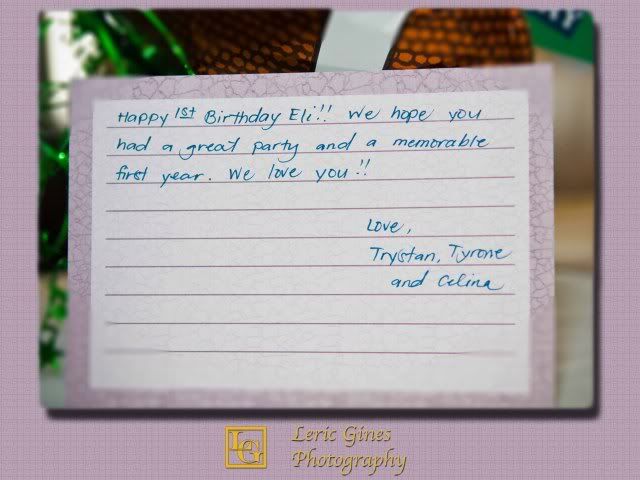 Happy 1st Birthday Eli!! We hope you
had a great party and a memorable
first year. We love you!!
Love,
Trystan, Tyrone
and Celina
LG
Leric Gines
Photography